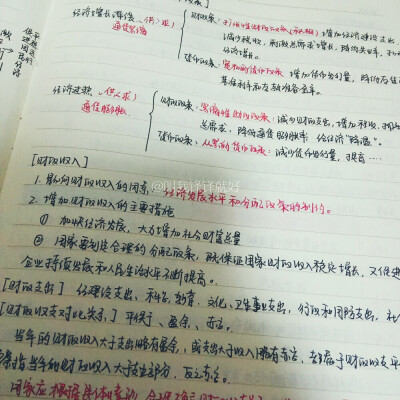 经济增长滞缓（供>求）
通货紧缩
财政政策：扩张性财政政策 增加经济建设支出，
减少税收，刺激总需求增长，降低失业率，
经济增长。
货币政策：宽松的货币政策 增加货币发行量，降低存贷
基准利率和存款准备金率。
经济过热（供<求）
通货膨胀
财政政策：紧缩性财政政策：减少财政支出，增加税收，抑制
总需求，降低通货膨胀率，给经济“降温”。
货币政策：从紧的货币政策：减少货币发行量，提高……
[财政收入]
1. 影响财政收入的因素 经济发展水平和分配政策的制约。
2. 增加财政收入的主要措施
① 加快经济发展，大力增加社会财富总量
② 国家要制定合理的分配政策，既保证国家财政收入稳定增长，又促进
企业持续发展和人民生活水平不断提高。
[财政支出] 经济建设支出，科学、教育、文化、卫生事业支出，行政和国防支出，社
[财政收支对比关系] 平衡、盈余、赤字。
当年的财政收入大于支出略有盈余，或支出大于收入略有赤字，都属于财政收支平
指当年的财政收入大于支出部分，反之赤字。
国家应根据具体情况，合理确
@叫我译译就好